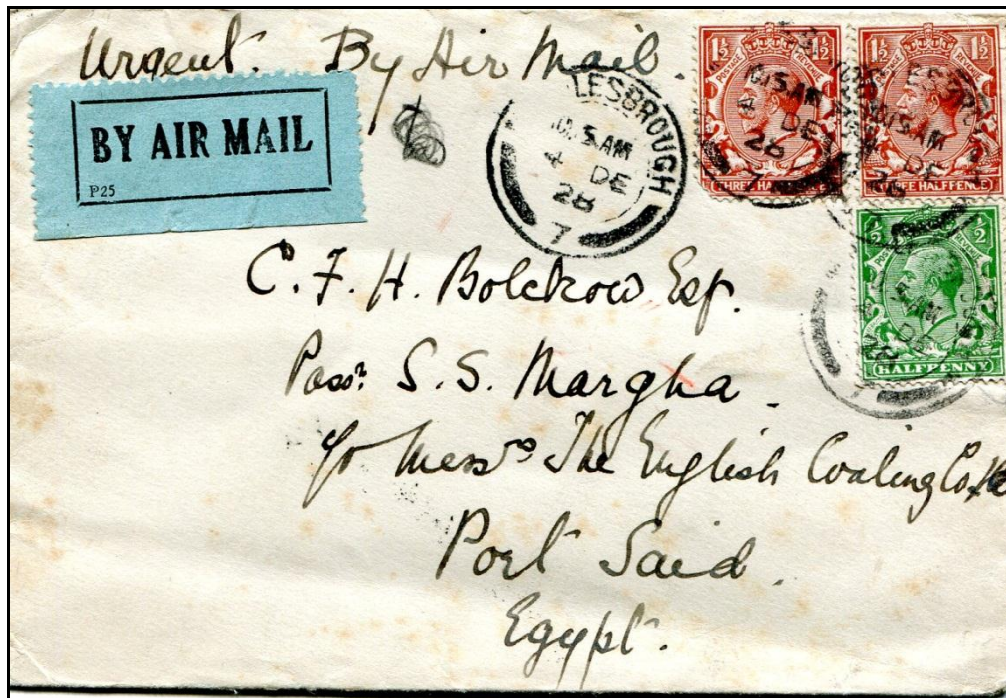 Urgent. By Air Mail.
BY AIR MAIL
P25
LESBROUGH
10.15 AM
4 DE
28
7
1½ 1½
POSTAGE REVENUE
10.15 AM
4 DE
28
7
THREE HALFPENCE
1½ 1½
POSTAGE REVENUE
10.15 AM
DE
28
THREE HALFPENCE
½ ½
POSTAGE REVENUE
AM
DE
28
HALFPENNY
C. F. H. Bolckow Esq.
Passr. S. S. Margha.
c/o Messrs The English Coaling Co.
Port Said.
Egypt.